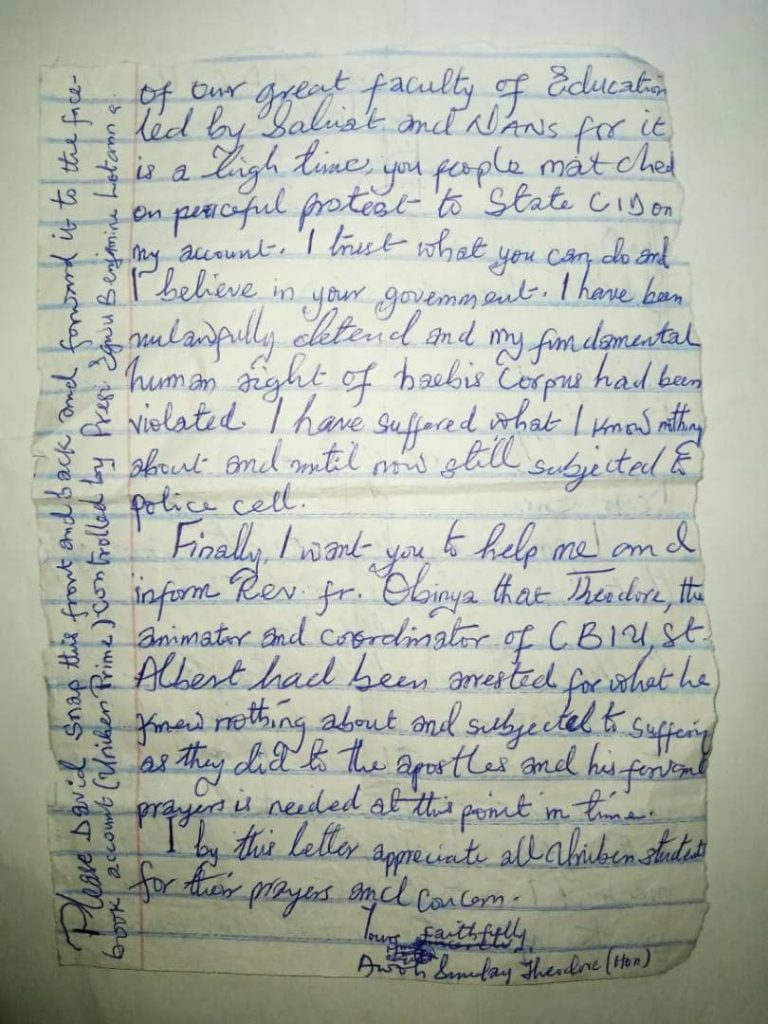 of our great faculty of Education
led by Saliat and NANS for it
is a high time, you people matched
on peaceful protest to State CID on
my account. I trust what you can do and
I believe in your government. I have been
unlawfully detend and my fundamental
human right of haebis Corpus had been
violated. I have suffered what I know nothing
about and until now still subjected to
police cell.
Finally, I want you to help me and
inform Rev. fr. Obinya that Theodore, the
animator and coordinator of CBIU, St.
Albert had been arrested for what he
knew nothing about and subjected to suffering
as they did to the apostles and his fervent
prayers is needed at this point in time.
I by this letter appreciate all Uniben students
for their prayers and concern.
Yours faithfully,
Awoh Sunday Theodore (Hon)
Please David snap this front and back and forward it to the face-
book account (Uniben Prime) Controlled by Presi Egwu Benjamine